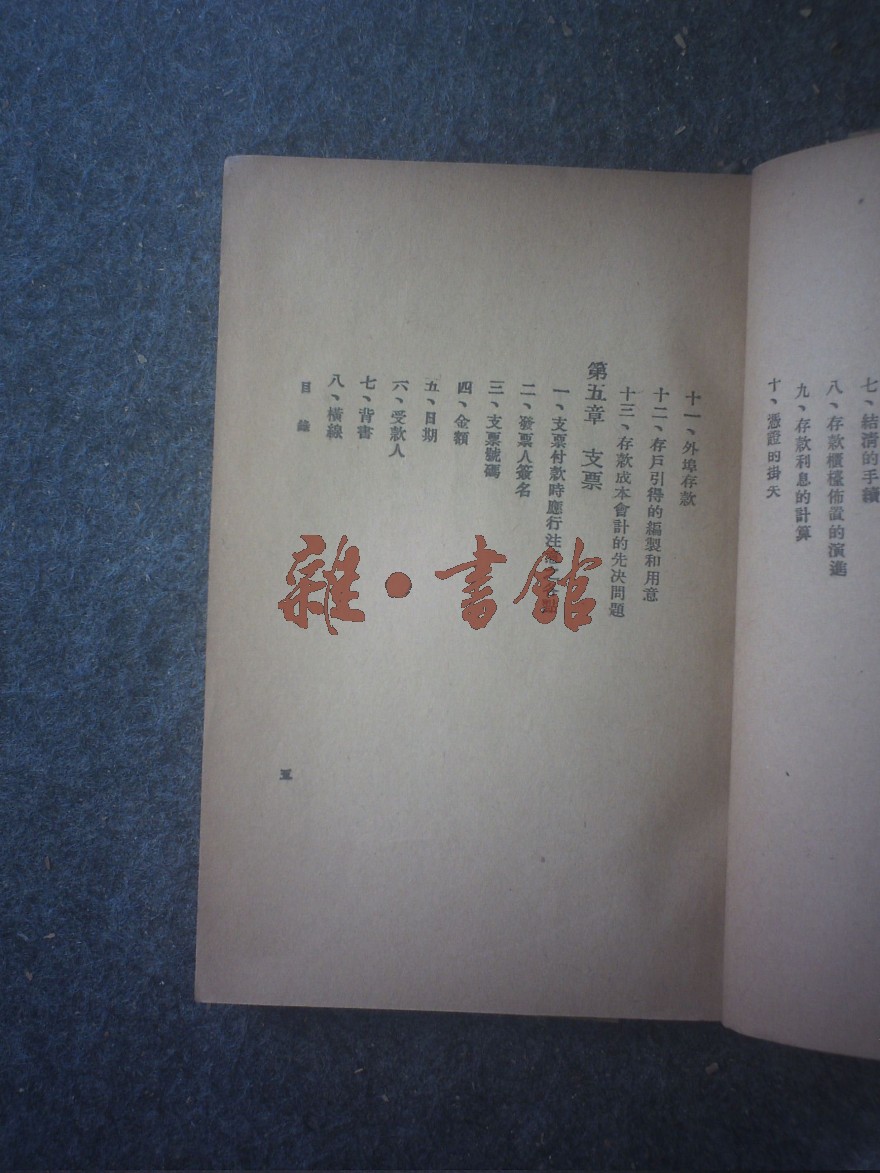 七、結清的手續
八、存款櫃檯佈置的演進
九、存款利息的計算
十、憑證的掛失
十一、外埠存款
十二、存戶引得的編製和用意
十三、存款成本會計的先决問題
第五章 支票
一、支票付款時應行注
二、發票人簽名
三、支票號碼
四、金額
五、日期
六、受款人
七、背書
八、橫線
目錄
五
雜·書館